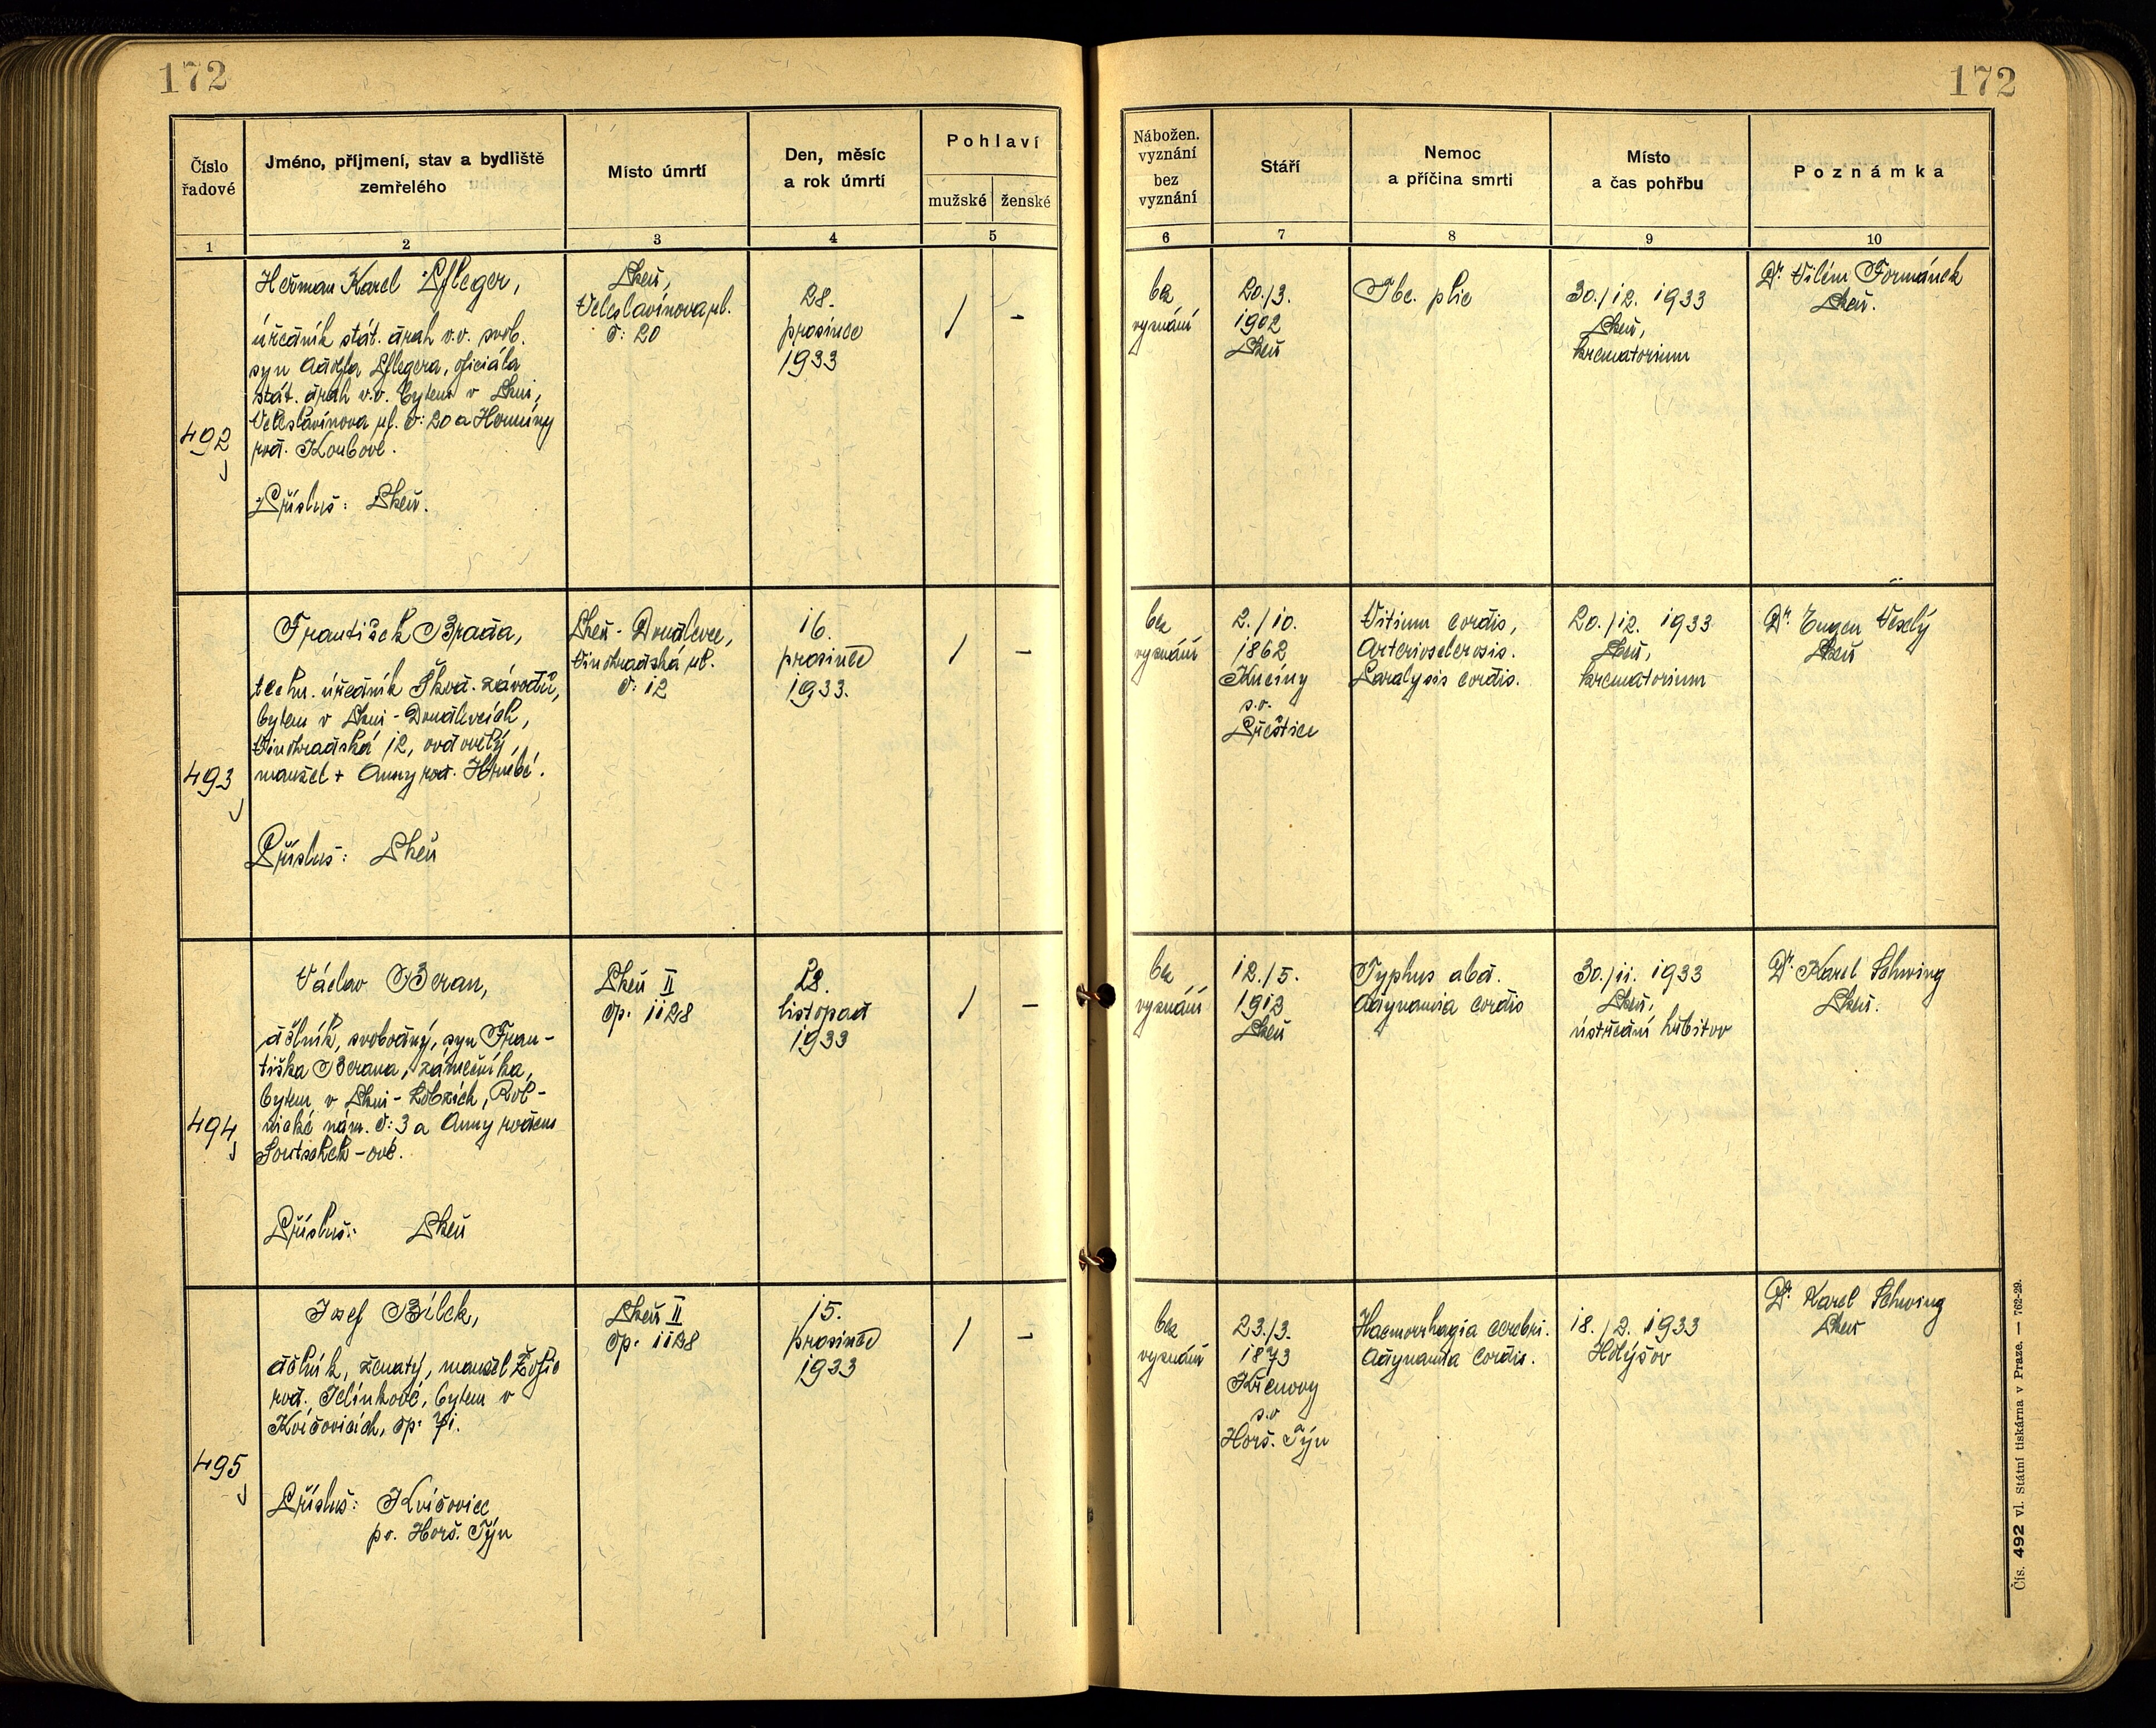 172
172
Číslo
řadové
Jméno, příjmení, stav a bydliště
zemřelého
Místo úmrtí
Den, měsíc
a rok úmrtí
Pohlaví
mužské
ženské
1
2
3
4
5
Nábožen.
vyznání
bez
vyznání
Stáří
Nemoc
a příčina smrti
Místo
a čas pohřbu
Poznámka
6
7
8
9
10
492
Heřman Karel Pfleger,
úředník stát. drah v.v. svob.
syn Adolfa Pflegera, oficiála
stát. drah v.v. bytem v Plzni,
Veleslavínova ul. č: 20 a Hermíny
roz. Koubové.
Přísluš: Plzeň.
Plzeň,
Veleslavínova ul.
č: 20
28.
prosince
1933
/ -
bez
vyznání
20./3.
1902
Plzeň
Tbc. plic
30./12. 1933
Plzeň,
krematorium
Dr. Vilém Formánek
Plzeň.
493
František Brada,
techn. úředník Škod. závodů,
bytem v Plzni-Doudlevcích,
Vinohradská 12, ovdovělý,
manžel + Anny roz. Hrubé.
Přísluš: Plzeň
Plzeň-Doudlevce,
Vinohradská ul.
č: 12
16.
prosince
1933.
/ -
bez
vyznání
2./10.
1862
Kucíny
s.o.
Přeštice
Vitium cordis,
Arteriosclerosis.
Paralysis cordis.
20./12. 1933
Plzeň,
krematorium
Dr. Eugen Veselý
Plzeň
494
Václav Beran,
dělník, svobodný, syn Fran-
tiška Berana, zámečníka,
bytem v Plzni-Lobzích, Rol-
nické nám. č: 3 a Anny rozen
-ové.
Přísluš: Plzeň
Plzeň II
čp. 1128
28.
listopad
1933
/ -
bez
vyznání
12./5.
1913
Plzeň
Typhus abd.
Adynamia cordis
30./11. 1933
Plzeň,
ústřední hřbitov
Dr. Karel Schwing
Plzeň.
495
Josef Bílek,
dělník, ženatý, manžel Žofie
roz. Jelínkové, bytem v
Kvíčovicích, čp. 71.
Přísluš: Kvíčovice
po. Horš. Týn
Plzeň II
čp. 1128
15.
prosince
1933
/ -
bez
vyznání
23./3.
1873
Křenovy
s.o
Horš. Týn
Haemorrhagia cerebri.
Adynamia cordis.
18./2. 1933
Holýšov
Dr. Karel Schwing
Plzeň
Čís. 492 vl. Státní tiskárna v Praze. — 762-29.